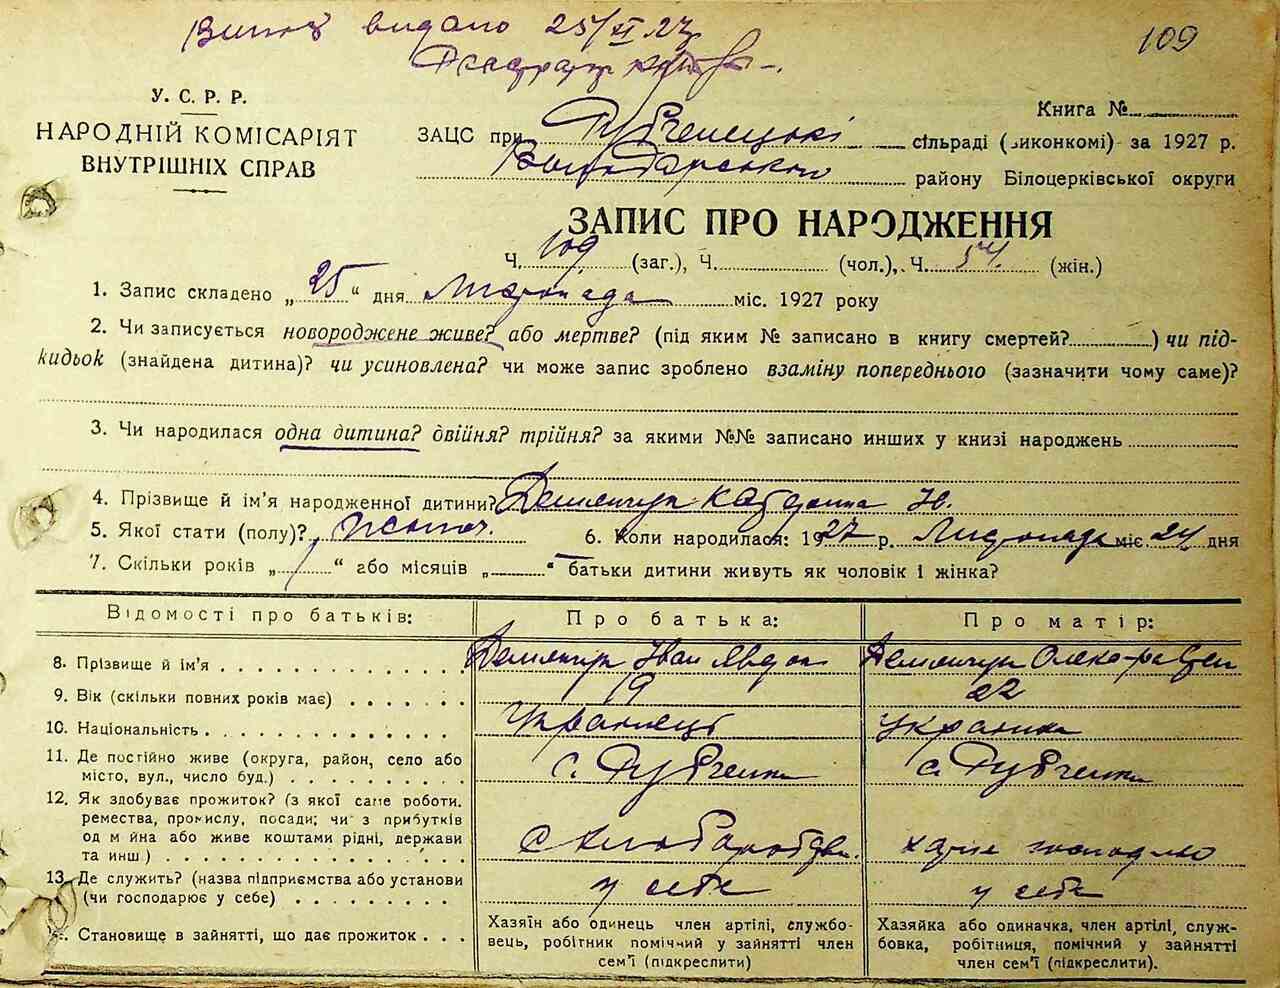 видано 25/XI 27
109
У. С. Р. Р.
НАРОДНІЙ КОМІСАРІЯТ
ВНУТРІШНІХ СПРАВ
Книга №
ЗАЦС при сільраді (виконкомі) за 1927 р.
району Білоцерківської округи
ЗАПИС ПРО НАРОДЖЕННЯ
Ч. 109 (заг.), Ч. (чол.), Ч. 54. (жін.)
1. Запис складено „ 25 “ дня Листопада міс. 1927 року
2. Чи записується новороджене живе? або мертве? (під яким № записано в книгу смертей? ) чи під-
кидьок (знайдена дитина)? чи усиновлена? чи може запис зроблено взаміну попереднього (зазначити чому саме)?
3. Чи народилася одна дитина? двійня? трійня? за якими №№ записано инших у книзі народжень
4. Прізвище й ім’я народженної дитини?
5. Якої стати (полу)? 6. Коли народилася: 1927 р. Листопада міс. 24 дня
7. Скільки років „ “ або місяців „ “ батьки дитини живуть як чоловік і жінка?
Відомості про батьків: Про батька: Про матір:
8. Прізвище й ім’я Іван
9. Вік (скільки повних років має) 19 22
10. Національність Українець Українка
11. Де постійно живе (округа, район, село або с. с.
місто, вул., число буд.)
12. Як здобуває прожиток? (з якої саме роботи,
ремества, промислу, посади; чи з прибутків
од майна або живе коштами рідні, держави
та инш.)
13. Де служить? (назва підприємства або установи у себе у себе
(чи господарює у себе)
14. Становище в зайнятті, що дає прожиток
Хазяїн або одинець член артілі, службо-
вець, робітник помічний у зайнятті член
сем’ї (підкреслити)
Хазяйка або одиначка, член артілі, служ-
бовка, робітниця, помічний у зайнятті
член сем’ї (підкреслити).